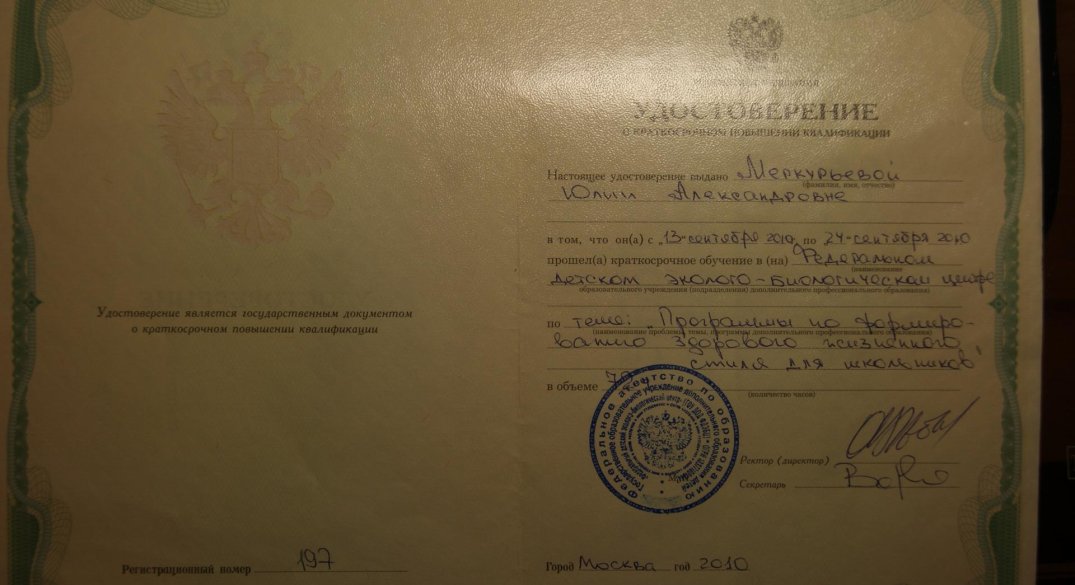 Удостоверение является государственным документом
о краткосрочном повышении квалификации
Регистрационный номер 197
УДОСТОВЕРЕНИЕ
О КРАТКОСРОЧНОМ ПОВЫШЕНИИ КВАЛИФИКАЦИИ
Настоящее удостоверение выдано Меркурьевой
(фамилия, имя, отчество)
Юлии Александровне
в том, что он(а) с „13“ сентября 2010 по 24 сентября 2010
прошел(а) краткосрочное обучение в (на) Федеральном
(наименование
детском эколого-биологическом центре
образовательного учреждения (подразделения) дополнительного профессионального образования)
по теме: „Программы по формиро-
(наименование проблемы, темы, программы дополнительного профессионального образования)
ванию здорового жизненного
стиля для школьников“
в объеме
(количество часов)
Федеральное агентство по образованию
Ректор (директор)
Секретарь
Город Москва год 2010